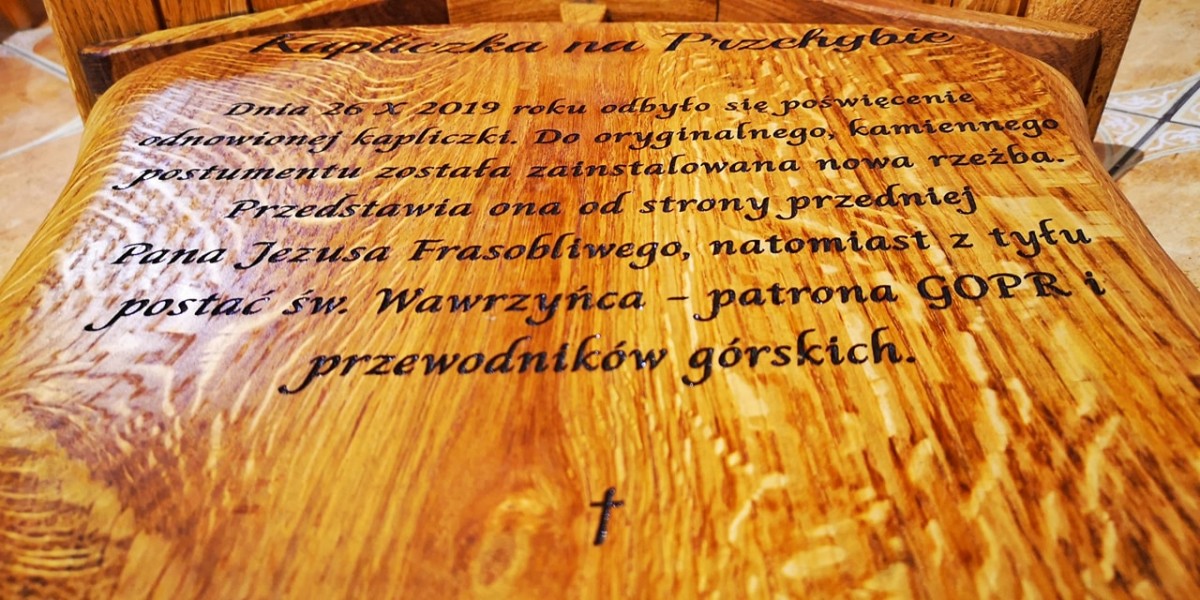 Kapliczka na Przehybie
Dnia 26 X 2019 roku odbyło się poświęcenie
odnowionej kapliczki. Do oryginalnego, kamiennego
postumentu została zainstalowana nowa rzeźba.
Przedstawia ona od strony przedniej
Pana Jezusa Frasobliwego, natomiast z tyłu
postać św. Wawrzyńca – patrona GOPR i
przewodników górskich.